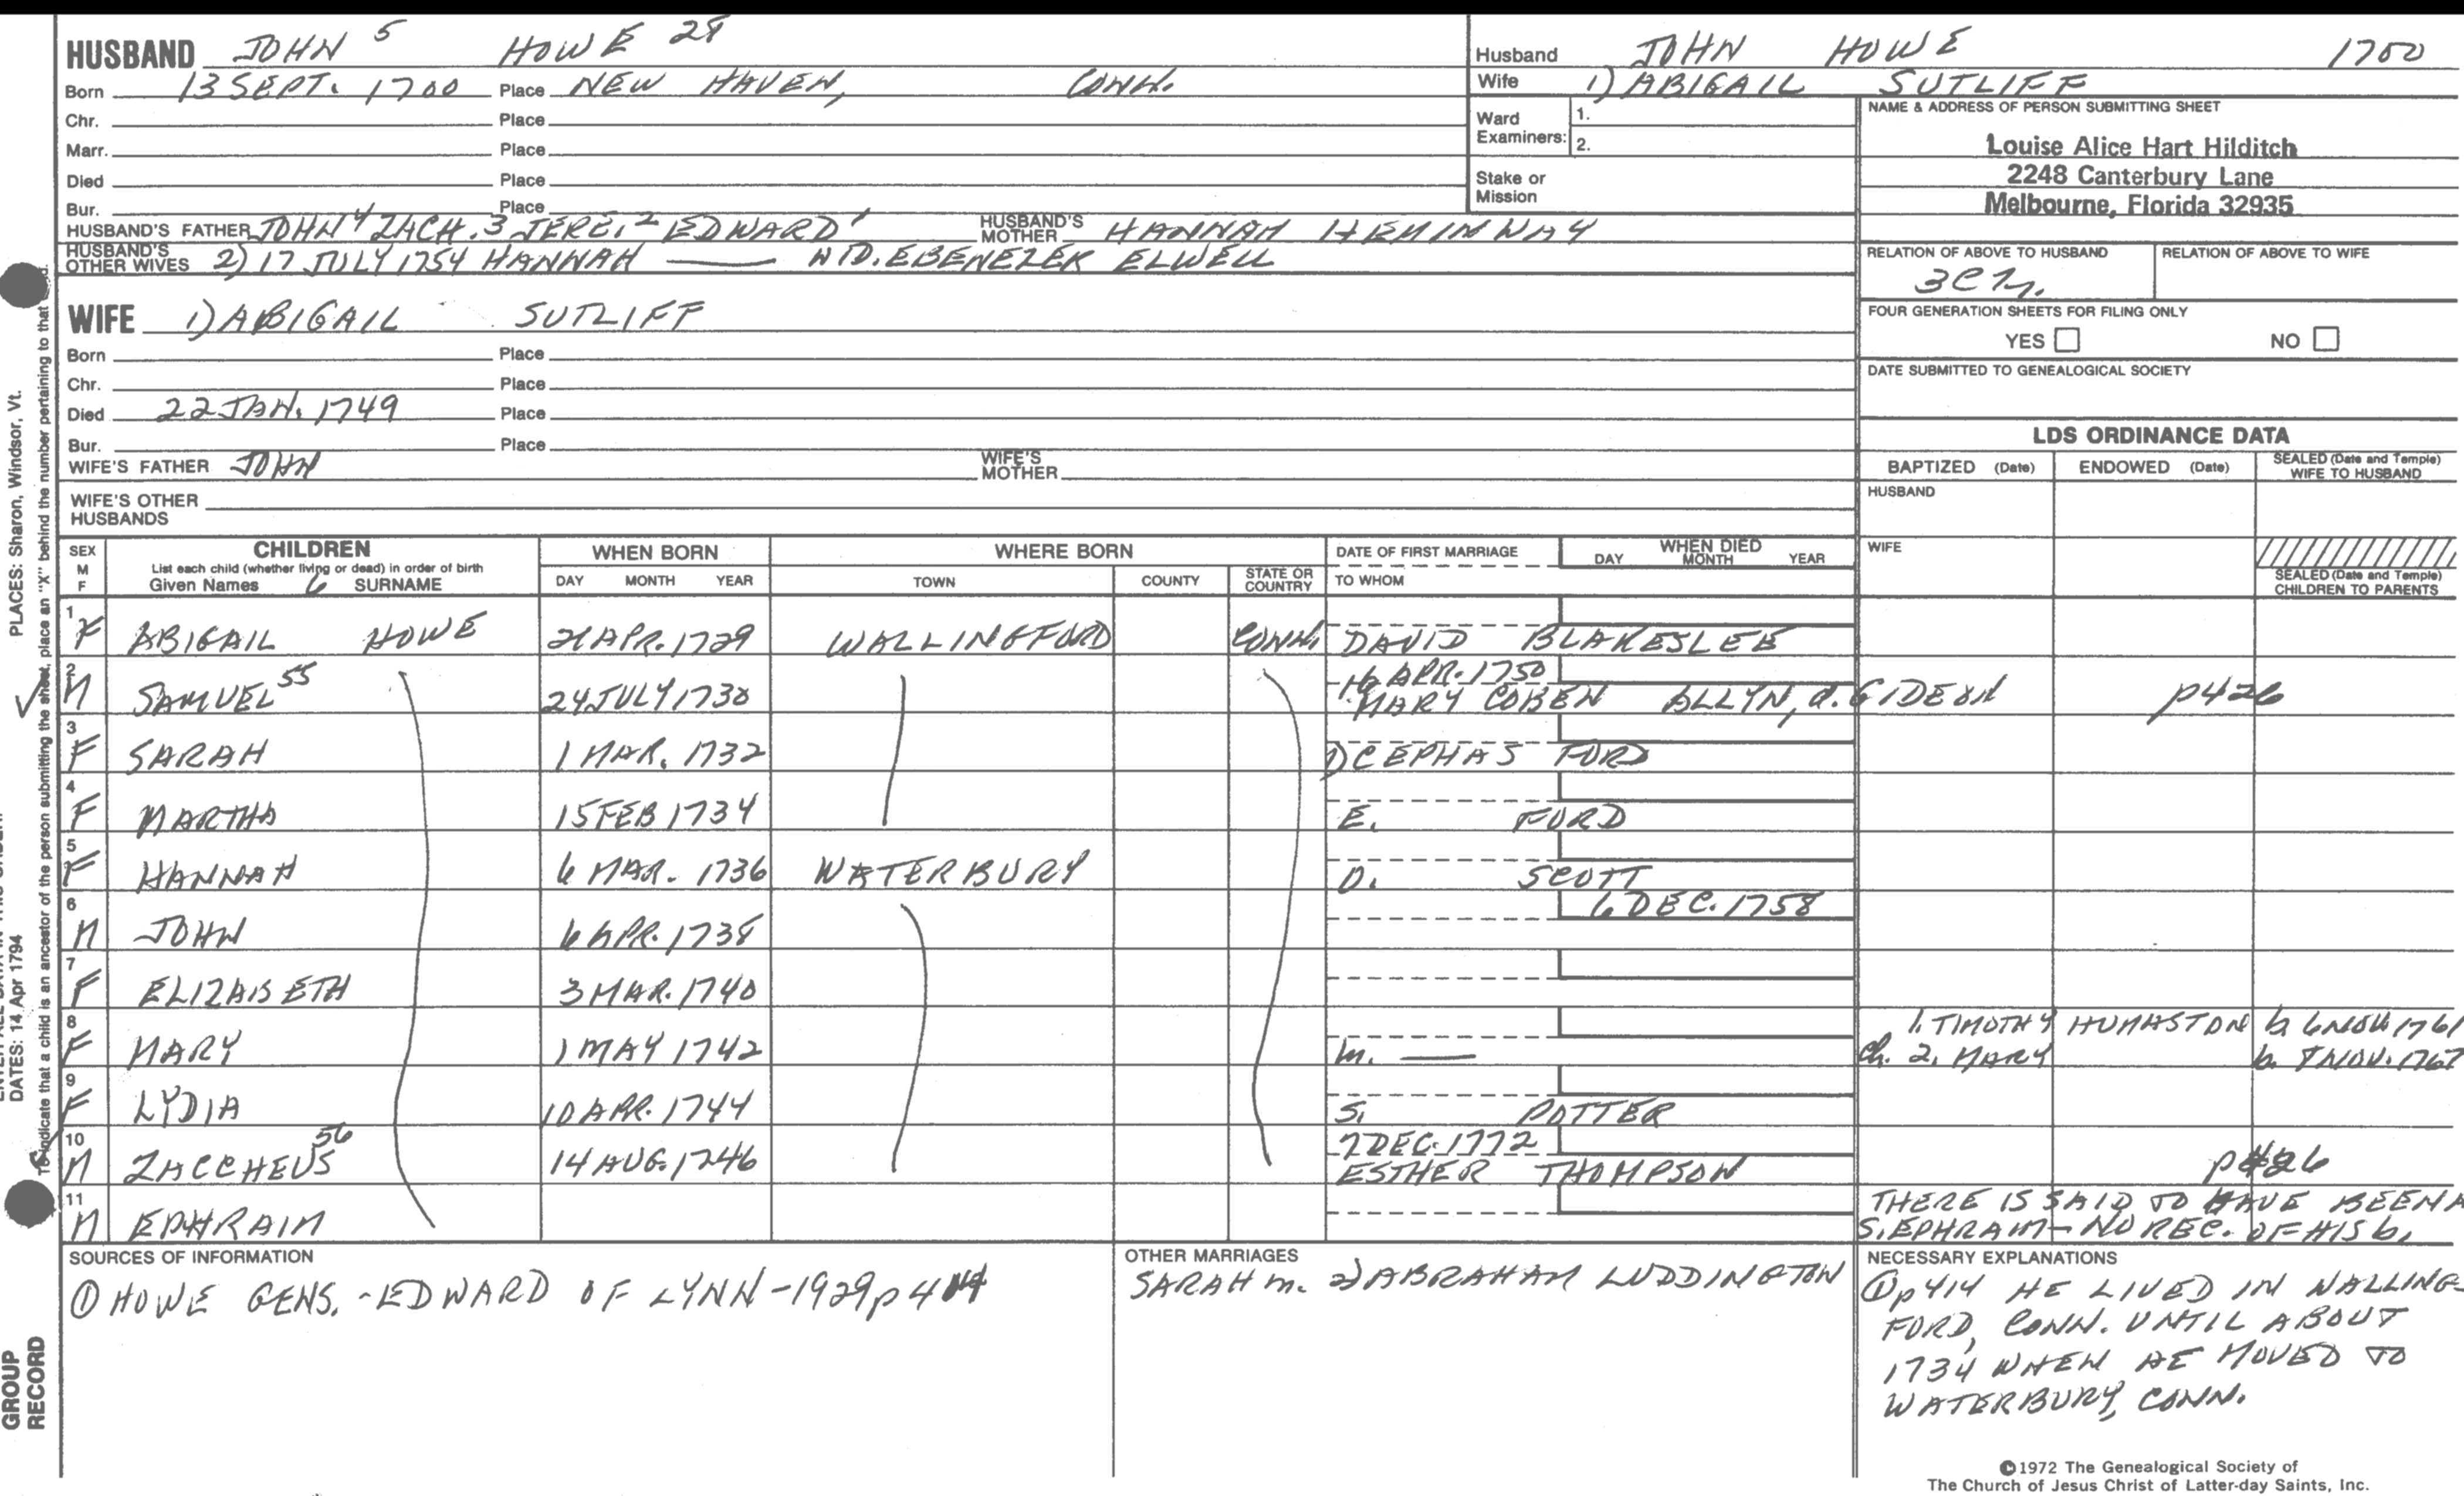 HUSBAND JOHN 5 HOWE 28
Born 13 SEPT. 1700 Place NEW HAVEN, CONN.
Chr. Place
Marr. Place
Died Place
Bur. Place
HUSBAND'S FATHER JOHN 4 ZACH. 3 JERE. 2 EDWARD 1 HUSBAND'S MOTHER HANNAH HEMINWAY
HUSBAND'S OTHER WIVES 2) 17 JULY 1754 HANNAH —— WID. EBENEZER ELWELL
WIFE 1) ABIGAIL SUTLIFF
Born Place
Chr. Place
Died 22 JAN. 1749 Place
Bur. Place
WIFE'S FATHER JOHN WIFE'S MOTHER
WIFE'S OTHER HUSBANDS
Husband JOHN HOWE 1700
Wife 1) ABIGAIL SUTLIFF
Ward Examiners: 1.
2.
Stake or Mission
NAME & ADDRESS OF PERSON SUBMITTING SHEET
Louise Alice Hart Hilditch
2248 Canterbury Lane
Melbourne, Florida 32935
RELATION OF ABOVE TO HUSBAND RELATION OF ABOVE TO WIFE
FOUR GENERATION SHEETS FOR FILING ONLY
YES NO
DATE SUBMITTED TO GENEALOGICAL SOCIETY
LDS ORDINANCE DATA
BAPTIZED (Date) ENDOWED (Date) SEALED (Date and Temple) WIFE TO HUSBAND
HUSBAND
WIFE
SEALED (Date and Temple) CHILDREN TO PARENTS
SEX M F CHILDREN List each child (whether living or dead) in order of birth Given Names 6 SURNAME WHEN BORN DAY MONTH YEAR WHERE BORN TOWN COUNTY STATE OR COUNTRY DATE OF FIRST MARRIAGE TO WHOM WHEN DIED DAY MONTH YEAR
1 F ABIGAIL HOWE APR. 1729 WALLINGFORD CONN. DAVID BLAKESLEE
2 M SAMUEL 55 24 JULY 1730 16 APR. 1750 MARY COBEN ALLYN, d. GIDEON p426
3 F SARAH 1 MAR. 1732 1) CEPHAS FORD
4 F MARTHA 15 FEB 1734 E. FORD
5 F HANNAH 6 MAR. 1736 WATERBURY D. SCOTT
6 M JOHN 6 APR. 1738 6 DEC. 1758
7 F ELIZABETH 3 MAR. 1740
8 F MARY 1 MAY 1742 m. —— ch. 1. TIMOTHY HUMASTON b 6 NOV. 1761
2. MARY b. NOV. 1767
9 F LYDIA 10 APR. 1744 S. POTTER
10 M ZACCHEUS 56 14 AUG. 1746 7 DEC. 1772 ESTHER THOMPSON p426
11 M EPHRAIM THERE IS SAID TO HAVE BEEN A
S. EPHRAIM - NO REC. OF HIS b.
SOURCES OF INFORMATION
① HOWE GENS. - EDWARD OF LYNN - 1929 p 414
OTHER MARRIAGES
SARAH m. 2) ABRAHAM LUDDINGTON
NECESSARY EXPLANATIONS
① p 414 HE LIVED IN WALLING-
FORD, CONN. UNTIL ABOUT
1734 WHEN HE MOVED TO
WATERBURY, CONN.
© 1972 The Genealogical Society of
The Church of Jesus Christ of Latter-day Saints, Inc.
PLACES: Sharon, Windsor, Vt.
DATES: 14 Apr 1794
To indicate that a child is an ancestor of the person submitting the sheet, place an "X" behind the number pertaining to that
GROUP
RECORD